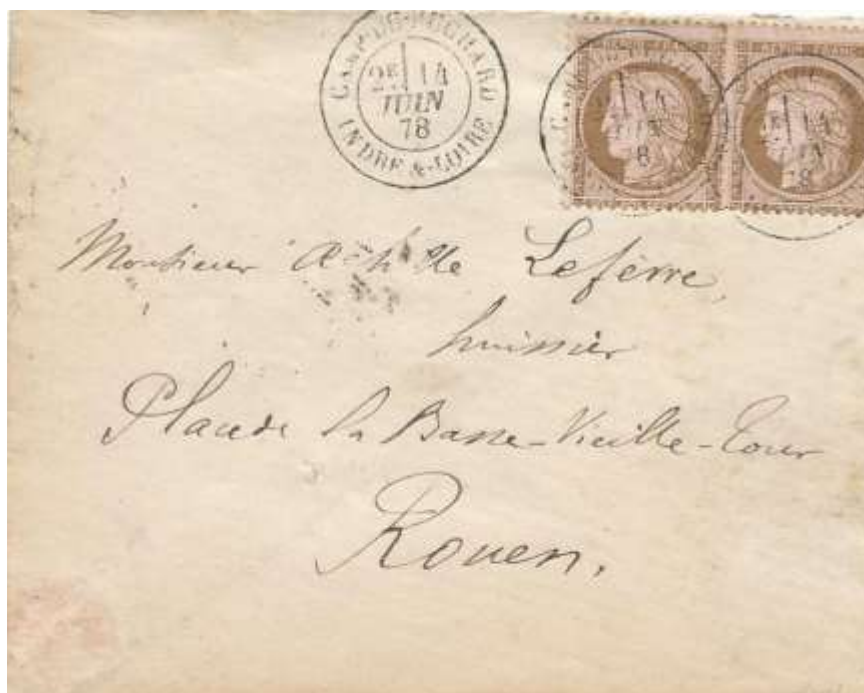 CAMP-DU-RUCHARD
2E 14
JUIN
78
INDRE-&-LOIRE
14
8
14
78
Monsieur Achille Lefèvre,
huissier
Place de la Basse-Vieille-Tour
Rouen.